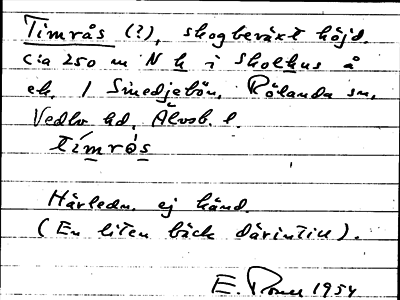 Timrås (?), skogbeväxt höjd.
Cia 250 m N h i Skolhus å
ek. 1 Smedjebön, Rölanda sn,
Vedbo hd, Älvsb. l.
tímrås
Härledn. ej känd.
(En liten bäck därintill).
E. 1954